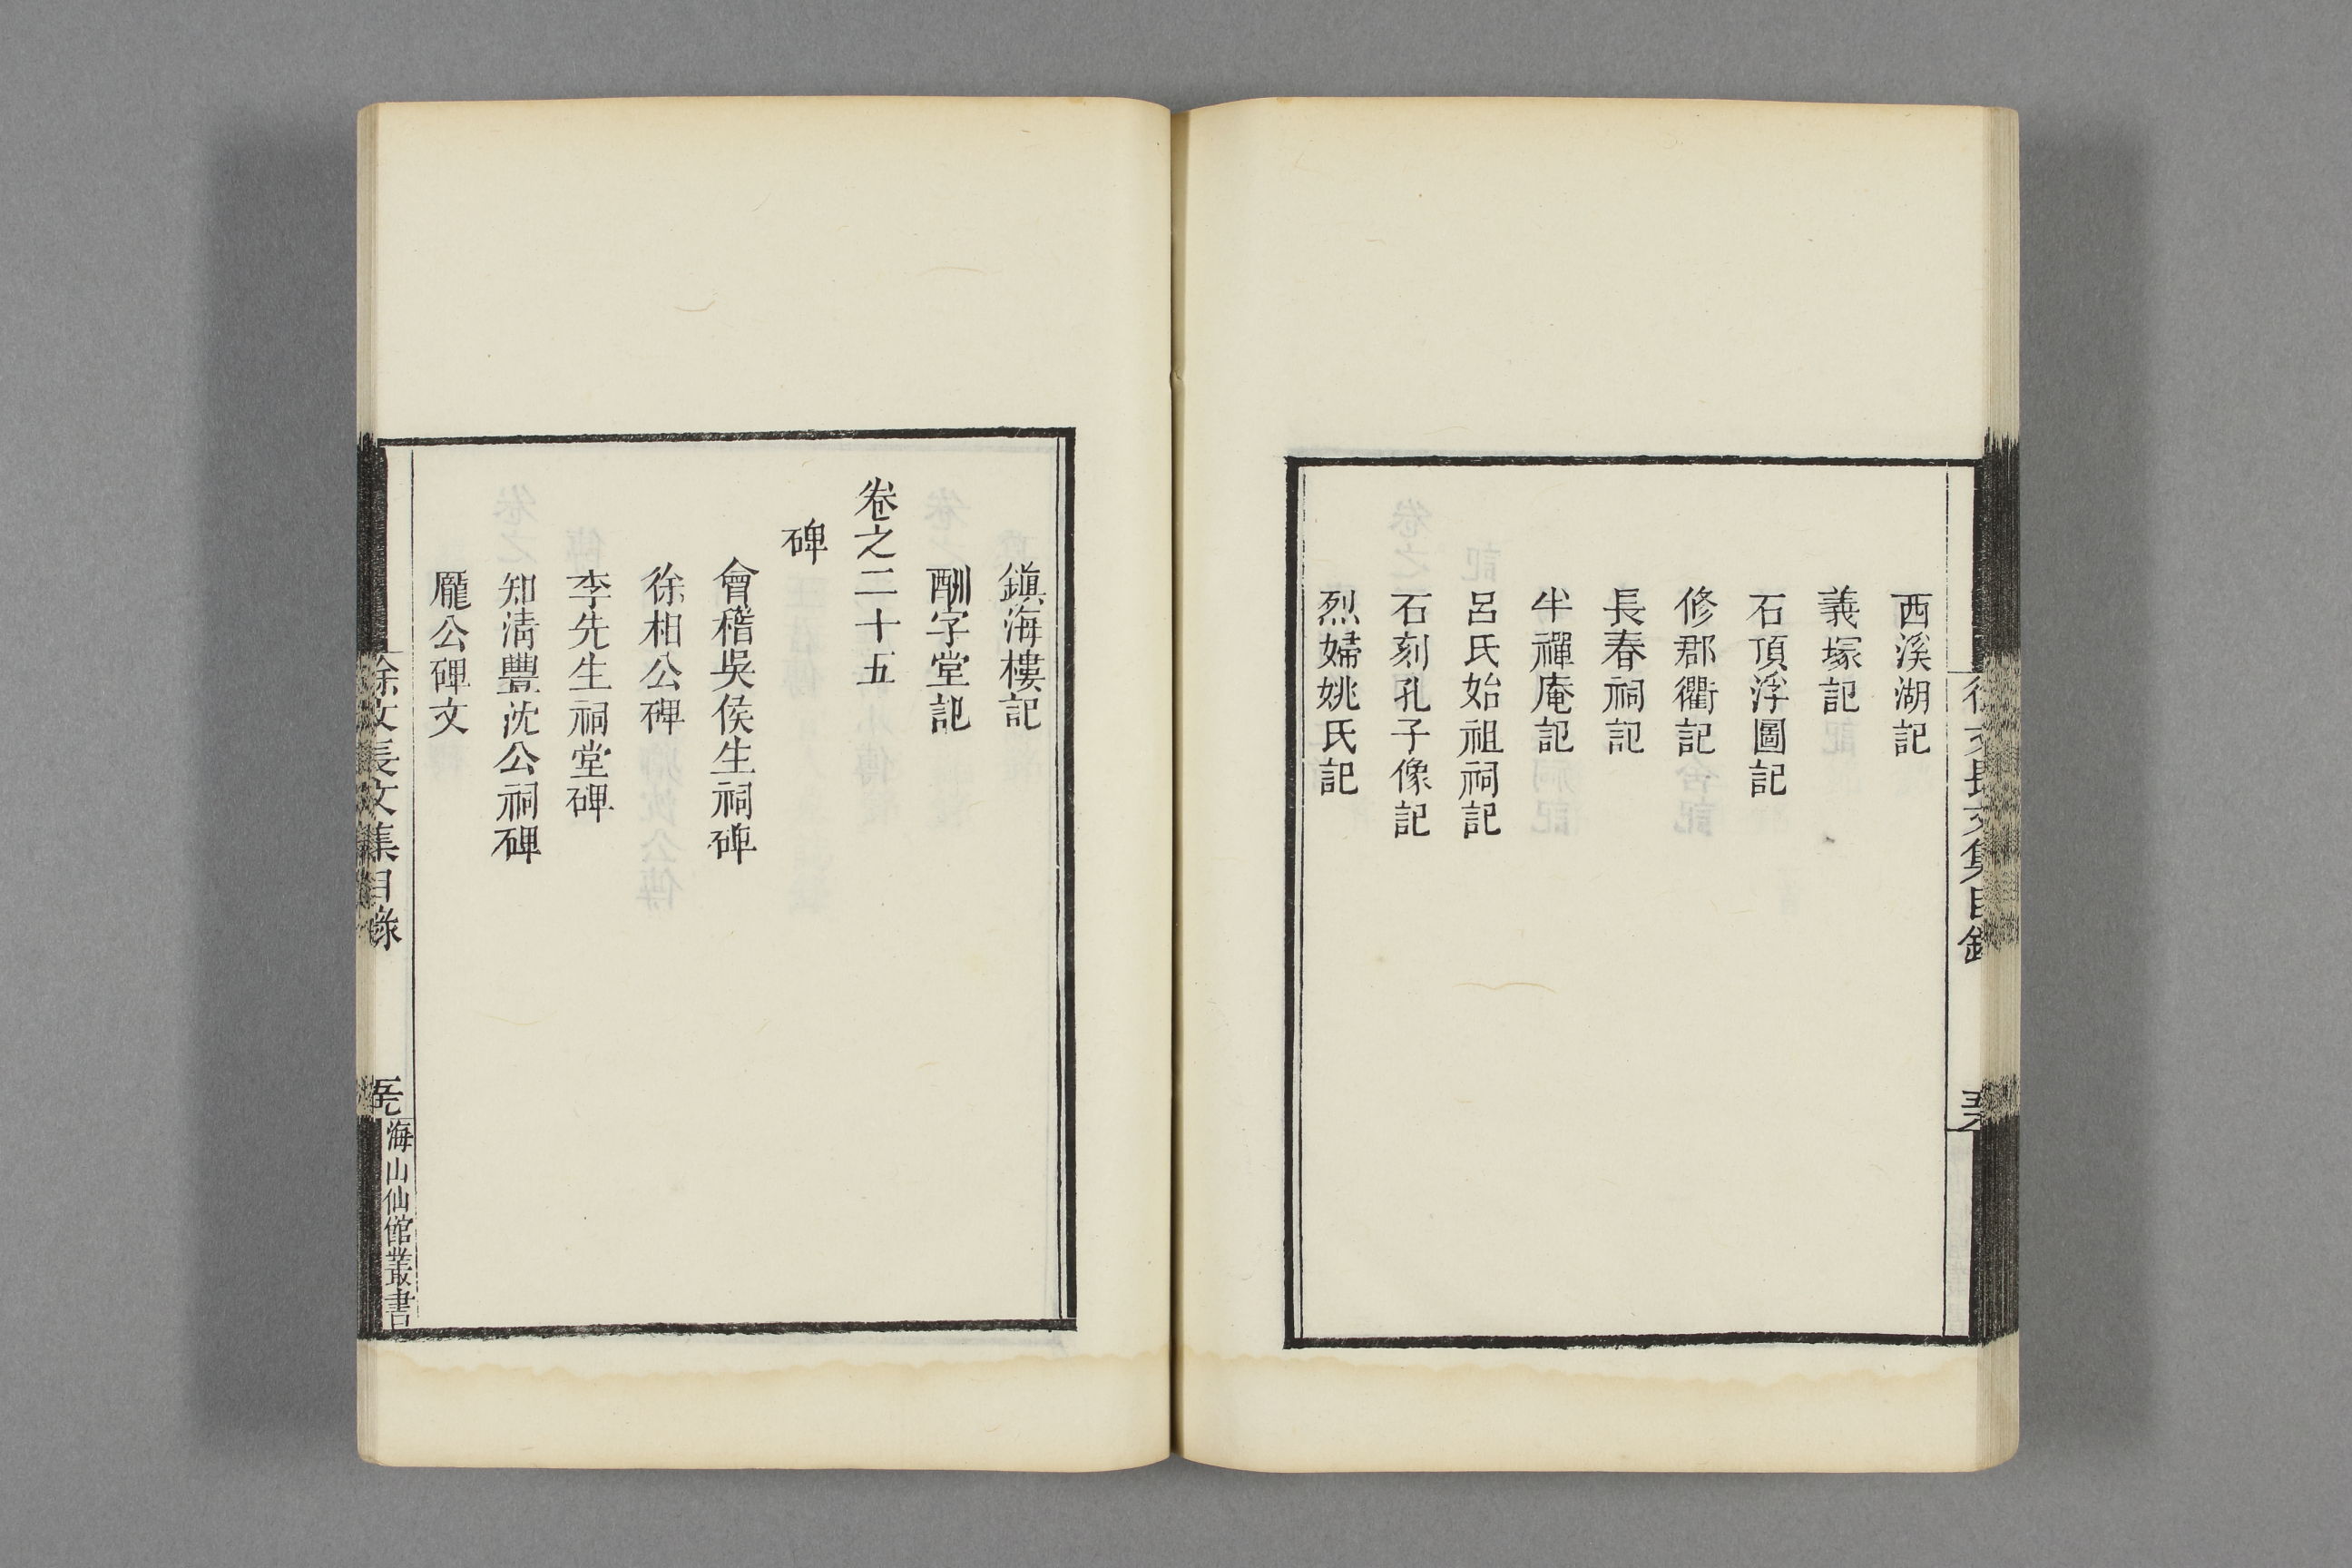 徐文長文集目錄
西溪湖記
義塚記
石頂浮圖記
修郡衢記
長春祠記
半禪庵記
呂氏始祖祠記
石刻孔子像記
烈婦姚氏記
鎮海樓記
酬字堂記
卷之二十五
碑
會稽吳侯生祠碑
徐相公碑
李先生祠堂碑
知清豐沈公祠碑
龐公碑文
徐文長文集目錄
海山仙館叢書